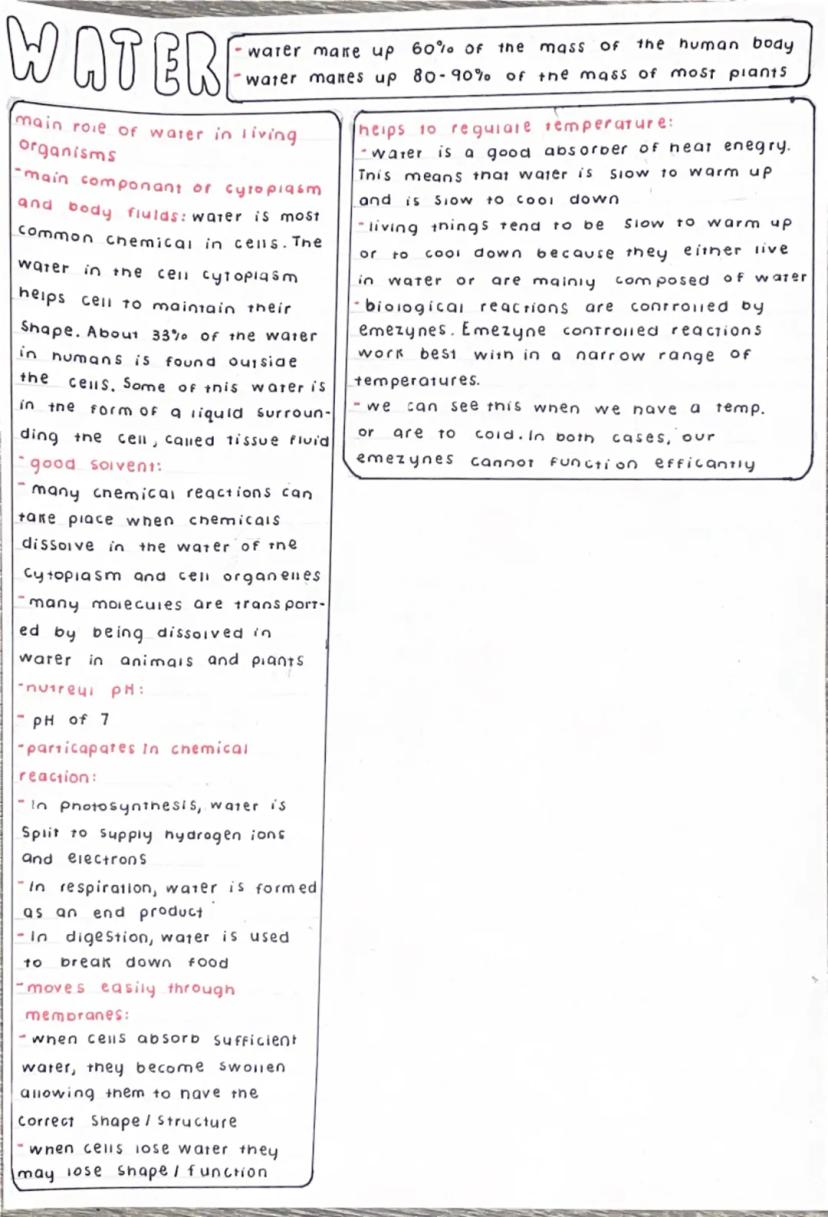 WATER
- water make up 60% of the mass of the human body
- water makes up 80-90% of the mass of most plants
main role of water in living
organisms
- main componant of cytoplasm
and body fluids: water is most
common chemical in cells. The
water in the cell cytoplasm
helps cell to maintain their
shape. About 33% of the water
in humans is found outside
the cells. Some of this water is
in the form of a liquid surroun-
ding the cell, called tissue fluid
- good solvent:
- many chemical reactions can
take place when chemicals
dissolve in the water of the
cytoplasm and cell organelles
- many molecules are transport-
ed by being dissolved in
water in animals and plants
- nutreul pH:
- pH of 7
- particapates in chemical
reaction:
- In photosynthesis, water is
split to supply hydrogen ions
and electrons
- In respiration, water is formed
as an end product
- In digestion, water is used
to break down food
- moves easily through
membranes:
- when cells absorb sufficient
water, they become swollen
allowing them to have the
correct shape/structure
- when cells lose water they
may lose shape/function
helps to regulate temperature:
- water is a good absorber of heat enegry.
This means that water is slow to warm up
and is slow to cool down
- living things tend to be slow to warm up
or to cool down because they either live
in water or are mainly composed of water
- biological reactions are controlled by
emezynes. Emezyne controlled reactions
work best with in a narrow range of
temperatures.
- we can see this when we have a temp.
or are to cold. In both cases, our
emezynes cannot function efficantly